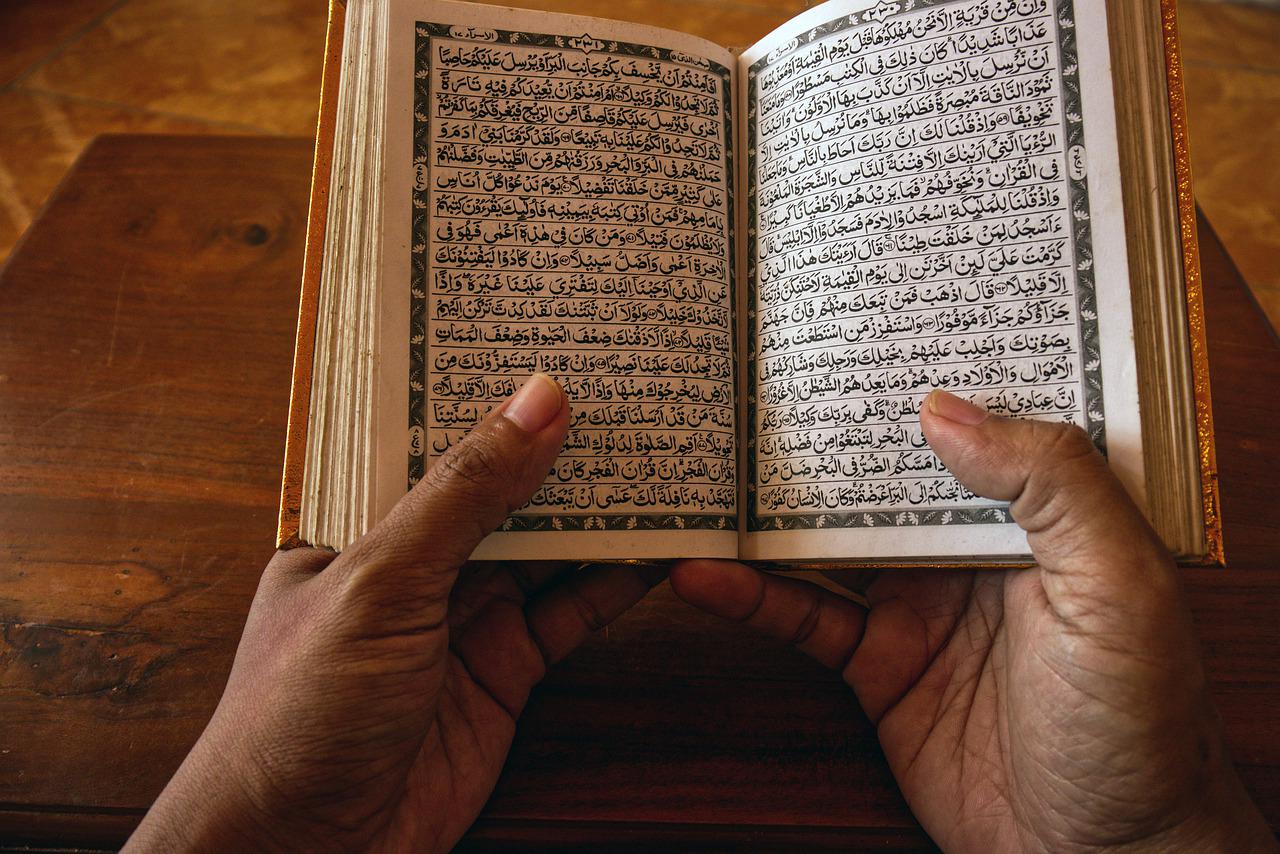 الاسرآء ١٧ ٢٣٠
وَاِنْ مِّنْ قَرْيَةٍ اِلَّا نَحْنُ مُهْلِكُوْهَا قَبْلَ يَوْمِ الْقِيٰمَةِ اَوْ مُعَذِّبُوْهَا
عَذَابًا شَدِيْدًا كَانَ ذٰلِكَ فِى الْكِتٰبِ مَسْطُوْرًا ٥٨ وَمَا مَنَعَنَآ
اَنْ نُّرْسِلَ بِالْاٰيٰتِ اِلَّآ اَنْ كَذَّبَ بِهَا الْاَوَّلُوْنَ وَاٰتَيْنَا
ثَمُوْدَ النَّاقَةَ مُبْصِرَةً فَظَلَمُوْا بِهَا وَمَا نُرْسِلُ بِالْاٰيٰتِ اِلَّا
تَخْوِيْفًا ٥٩ وَاِذْ قُلْنَا لَكَ اِنَّ رَبَّكَ اَحَاطَ بِالنَّاسِ وَمَا جَعَلْنَا
الرُّءْيَا الَّتِيْٓ اَرَيْنٰكَ اِلَّا فِتْنَةً لِّلنَّاسِ وَالشَّجَرَةَ الْمَلْعُوْنَةَ
فِى الْقُرْاٰنِ وَنُخَوِّفُهُمْ فَمَا يَزِيْدُهُمْ اِلَّا طُغْيَانًا كَبِيْرًا ٦٠
وَاِذْ قُلْنَا لِلْمَلٰٓئِكَةِ اسْجُدُوْا لِاٰدَمَ فَسَجَدُوْٓا اِلَّآ اِبْلِيْسَ قَالَ
ءَاَسْجُدُ لِمَنْ خَلَقْتَ طِيْنًا ٦١ قَالَ اَرَءَيْتَكَ هٰذَا الَّذِيْ
كَرَّمْتَ عَلَيَّ لَئِنْ اَخَّرْتَنِ اِلٰى يَوْمِ الْقِيٰمَةِ لَاَحْتَنِكَنَّ ذُرِّيَّتَهٗٓ
اِلَّا قَلِيْلًا ٦٢ قَالَ اذْهَبْ فَمَنْ تَبِعَكَ مِنْهُمْ فَاِنَّ جَهَنَّمَ
جَزَآؤُكُمْ جَزَآءً مَّوْفُوْرًا ٦٣ وَاسْتَفْزِزْ مَنِ اسْتَطَعْتَ مِنْهُمْ
بِصَوْتِكَ وَاَجْلِبْ عَلَيْهِمْ بِخَيْلِكَ وَرَجِلِكَ وَشَارِكْهُمْ فِى
الْاَمْوَالِ وَالْاَوْلَادِ وَعِدْهُمْ وَمَا يَعِدُهُمُ الشَّيْطٰنُ اِلَّا غُرُوْرًا ٦٤
اِنَّ عِبَادِيْ لَيْسَ سُلْطٰنٌ وَكَفٰى بِرَبِّكَ وَكِيْلًا ٦٥ رَبُّكُمُ
فِى الْبَحْرِ لِتَبْتَغُوْا مِنْ فَضْلِهٖ اِنَّهٗ
مَسَّكُمُ الضُّرُّ فِى الْبَحْرِ ضَلَّ مَنْ
نَجّٰىكُمْ اِلَى الْبَرِّ اَعْرَضْتُمْ وَكَانَ الْاِنْسَانُ كَفُوْرًا ٦٧
سبحن الذي ١٥ ٢٣١ الاسرآء ١٧
اَفَاَمِنْتُمْ اَنْ يَّخْسِفَ بِكُمْ جَانِبَ الْبَرِّ اَوْ يُرْسِلَ عَلَيْكُمْ حَاصِبًا
ثُمَّ لَا تَجِدُوْا لَكُمْ وَكِيْلًا ٦٨ اَمْ اَمِنْتُمْ اَنْ يُّعِيْدَكُمْ فِيْهِ تَارَةً
اُخْرٰى فَيُرْسِلَ عَلَيْكُمْ قَاصِفًا مِّنَ الرِّيْحِ فَيُغْرِقَكُمْ بِمَا كَفَرْتُمْ
ثُمَّ لَا تَجِدُوْا لَكُمْ عَلَيْنَا بِهٖ تَبِيْعًا ٦٩ وَلَقَدْ كَرَّمْنَا بَنِيْٓ اٰدَمَ وَ
حَمَلْنٰهُمْ فِى الْبَرِّ وَالْبَحْرِ وَرَزَقْنٰهُمْ مِّنَ الطَّيِّبٰتِ وَفَضَّلْنٰهُمْ
عَلٰى كَثِيْرٍ مِّمَّنْ خَلَقْنَا تَفْضِيْلًا ٧٠ يَوْمَ نَدْعُوْا كُلَّ اُنَاسٍ
بِاِمَامِهِمْ فَمَنْ اُوْتِيَ كِتٰبَهٗ بِيَمِيْنِهٖ فَاُولٰٓئِكَ يَقْرَءُوْنَ كِتٰبَهُمْ
وَلَا يُظْلَمُوْنَ فَتِيْلًا ٧١ وَمَنْ كَانَ فِيْ هٰذِهٖٓ اَعْمٰى فَهُوَ فِى
الْاٰخِرَةِ اَعْمٰى وَاَضَلُّ سَبِيْلًا ٧٢ وَاِنْ كَادُوْا لَيَفْتِنُوْنَكَ
عَنِ الَّذِيْٓ اَوْحَيْنَآ اِلَيْكَ لِتَفْتَرِيَ عَلَيْنَا غَيْرَهٗ وَاِذًا
لَّاتَّخَذُوْكَ خَلِيْلًا ٧٣ وَلَوْلَآ اَنْ ثَبَّتْنٰكَ لَقَدْ كِدْتَّ تَرْكَنُ اِلَيْهِمْ
شَيْئًا قَلِيْلًا ٧٤ اِذًا لَّاَذَقْنٰكَ ضِعْفَ الْحَيٰوةِ وَضِعْفَ الْمَمَاتِ
ثُمَّ لَا تَجِدُ لَكَ عَلَيْنَا نَصِيْرًا ٧٥ وَاِنْ كَادُوْا لَيَسْتَفِزُّوْنَكَ مِنَ
الْاَرْضِ لِيُخْرِجُوْكَ مِنْهَا وَاِذًا خِلٰفَكَ اِلَّا قَلِيْلًا ٧٦
سُنَّةَ مَنْ قَدْ اَرْسَلْنَا قَبْلَكَ مِنْ لِسُنَّتِنَا
تَحْوِيْلًا ٧٧ اَقِمِ الصَّلٰوةَ لِدُلُوْكِ
وَقُرْاٰنَ الْفَجْرِ اِنَّ قُرْاٰنَ الْفَجْرِ كَانَ
فَتَهَجَّدْ بِهٖ نَافِلَةً لَّكَ عَسٰٓى اَنْ يَّبْعَثَكَ